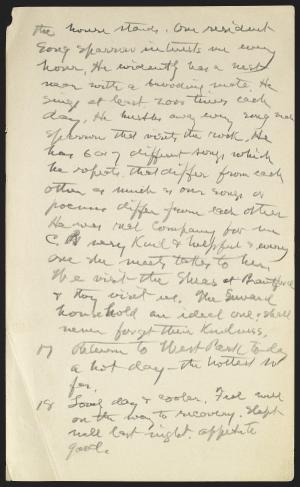 the house stands. One resident
Song Sparrow interests me every
hour. He evidently has a nest
near with a brooding mate. He
sings at least 2000 times each
day. He hustles away every song
sparrow that visits the rock. He
has 6 or 7 different songs which
he repeats. that differ from each
other as much as our songs or
poems differ from each other
He was real Company for me
C B very Kind & helpful & every
one she meets takes to her.
We visit the Sheas at Brantford
& they visit us. The Seward
household an ideal one, I shall
never forget their Kindness.
17 Return to West Park to-day
a hot day - the hottest so
far.
18 Lovely day & cooler. Feel well
on the way to recovery. Slept
well last night. appetite
good.